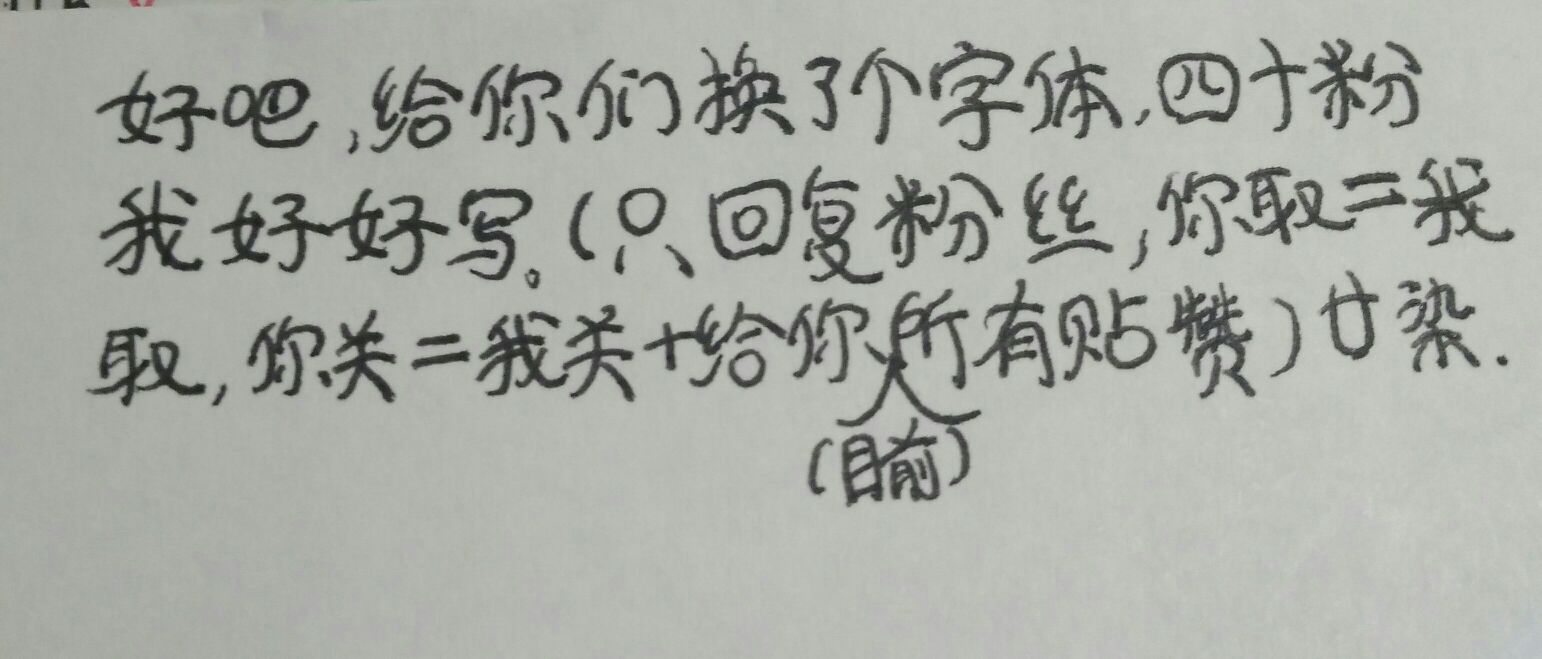 好吧,给你们换了个字体,四十粉
我好好写。(只回复粉丝,你取=我
取,你关=我关+给你所有贴赞)廿染.
(目前)